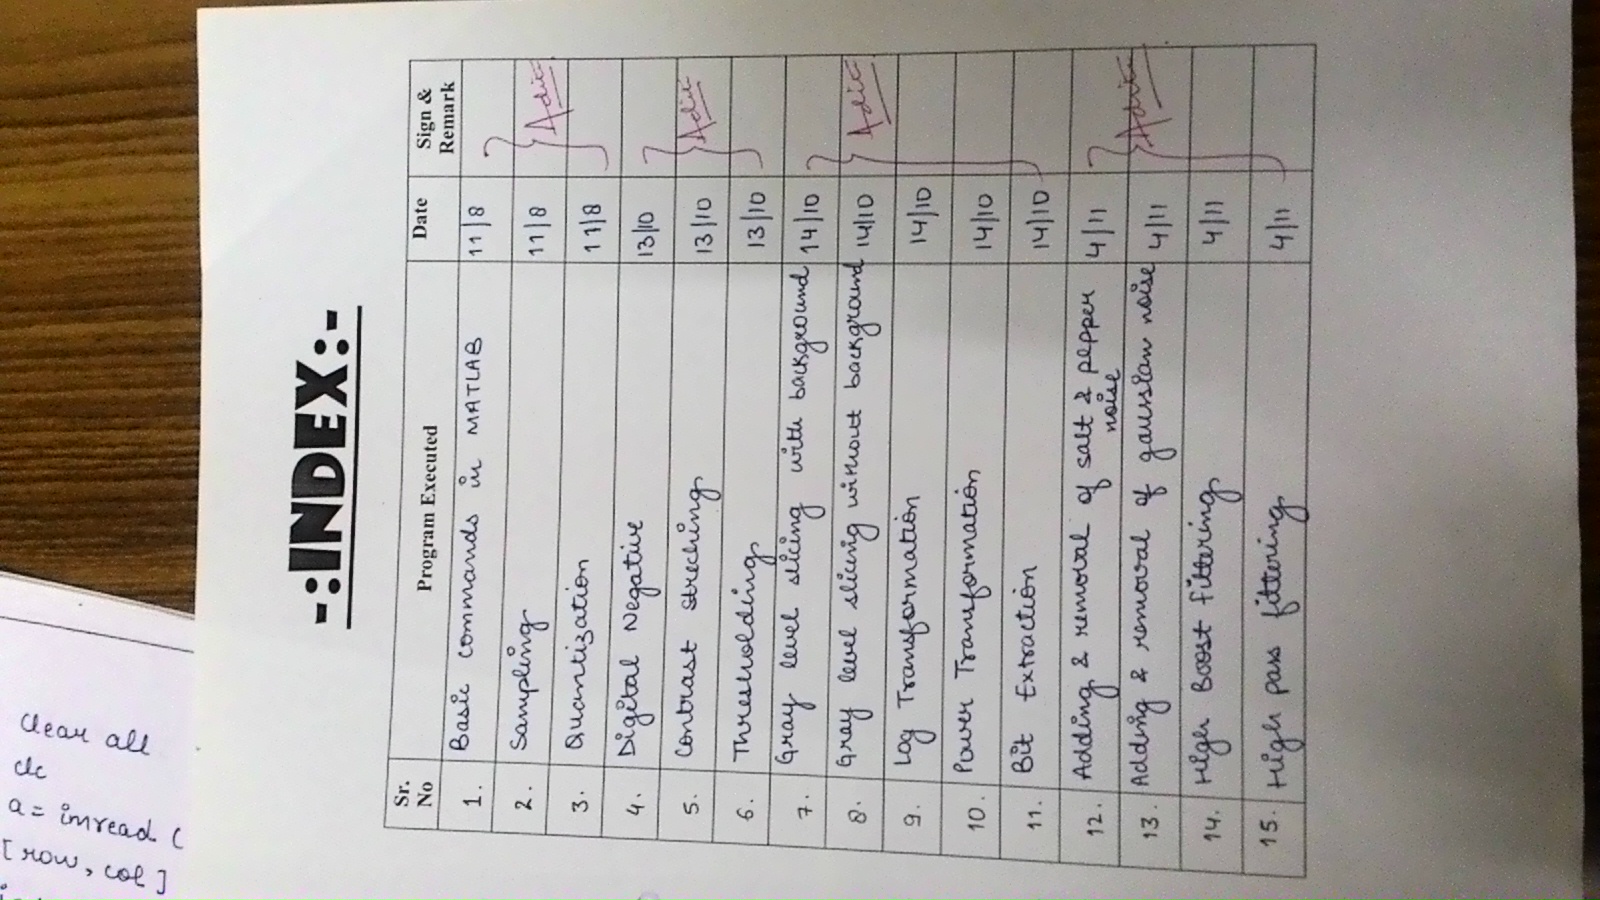 clear all
clc
a = imread (
[ row, col ]
-:INDEX:-
Sr. No
Program Executed
Date
Sign & Remark
1. Basic commands in MATLAB 11/8
2. Sampling 11/8
3. Quantization 11/8
Aditi
4. Digital Negative 13/10
5. Contrast streching 13/10
6. Thresholding 13/10
Aditi
7. Gray level slicing with background 14/10
8. Gray level slicing without background 14/10
9. Log Transformation 14/10
10. Power Transformation 14/10
11. Bit Extraction 14/10
Aditi
12. Adding & removal of salt & pepper
noise 4/11
13. Adding & removal of gaussian noise 4/11
14. High Boost fittering 4/11
15. High pass fittering 4/11
Aditi